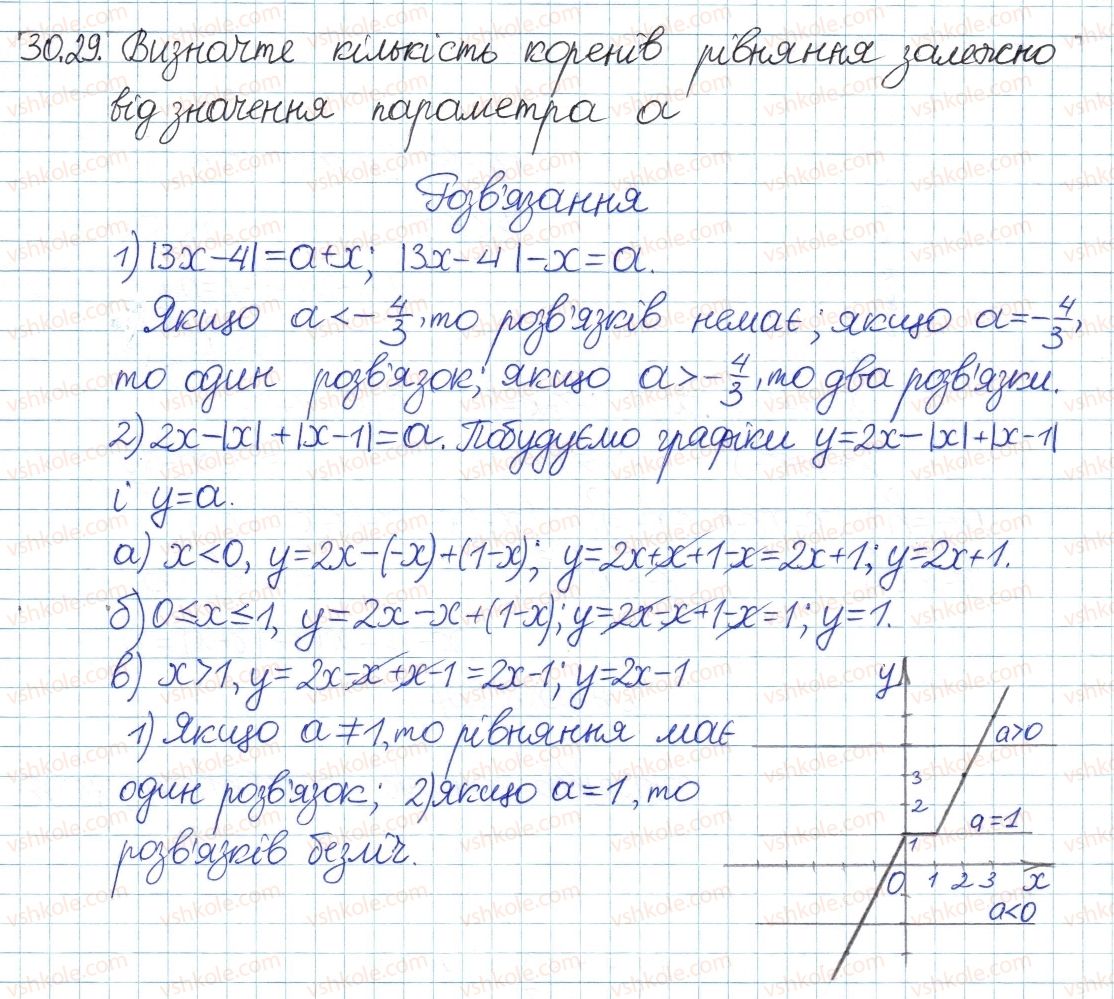 30.29. Визначте кількість коренів рівняння залежно
від значення параметра a
Розв'язання
1) |3x-4|=a+x; |3x-4|-x=a.
Якщо a<-4/3, то розв'язків немає; якщо a=-4/3,
то один розв'язок; якщо a>-4/3, то два розв'язки.
2) 2x-|x|+|x-1|=a. Побудуємо графіки y=2x-|x|+|x-1|
і y=a.
а) x<0, y=2x-(-x)+(1-x); y=2x+x+1-x=2x+1; y=2x+1.
б) 0≤x≤1, y=2x-x+(1-x); y=2x-x+1-x=1; y=1.
в) x>1, y=2x-x+x-1=2x-1; y=2x-1
1) Якщо a≠1, то рівняння має
один розв'язок; 2) якщо a=1, то
розв'язків безліч.
y
a>0
3
2
a=1
1
0 1 2 3 x
a<0